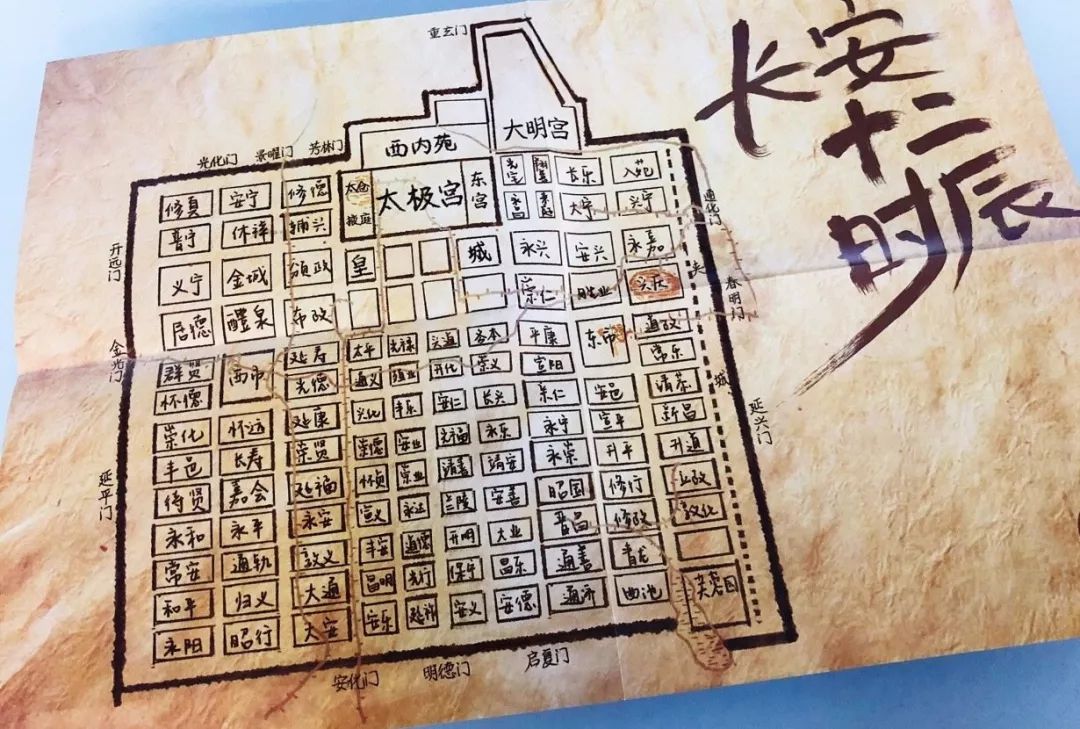 长安
十二
时辰
重玄门
大明宫
西内苑
光化门 景曜门 芳林门
太仓 太极宫 东宫
掖庭
修真 安宁 修德 光宅 翊善 长乐 入苑
普宁 休祥 辅兴 永昌 来庭 大宁 兴宁
通化门
开远门
义宁 金城 颁政 皇 城 永兴 安兴 永嘉
崇仁 胜业 兴庆
夹 城
春明门
启德 醴泉 布政
金光门
群贤 西市 延寿 太平 光禄 兴道 务本 平康 东市 道政
怀德 光德 通义 殖业 开化 崇义 宣阳 常乐
崇化 怀远 延康 兴化 丰乐 安仁 长兴 亲仁 安邑 靖恭
丰邑 长寿 崇贤 崇德 安业 光福 永乐 永宁 宣平 新昌
延兴门
延平门
待贤 嘉会 延福 怀贞 崇业 靖善 靖安 永崇 升平 升道
永和 永平 永安 宣义 永达 兰陵 安善 昭国 修行 立政
常安 通轨 敦义 丰安 道德 开明 大业 晋昌 修政 敦化
和平 归义 大通 昌明 光行 保宁 昌乐 通善 青龙
永阳 昭行 大安 安乐 延祚 安义 安德 通济 曲池 芙蓉园
安化门 明德门 启夏门